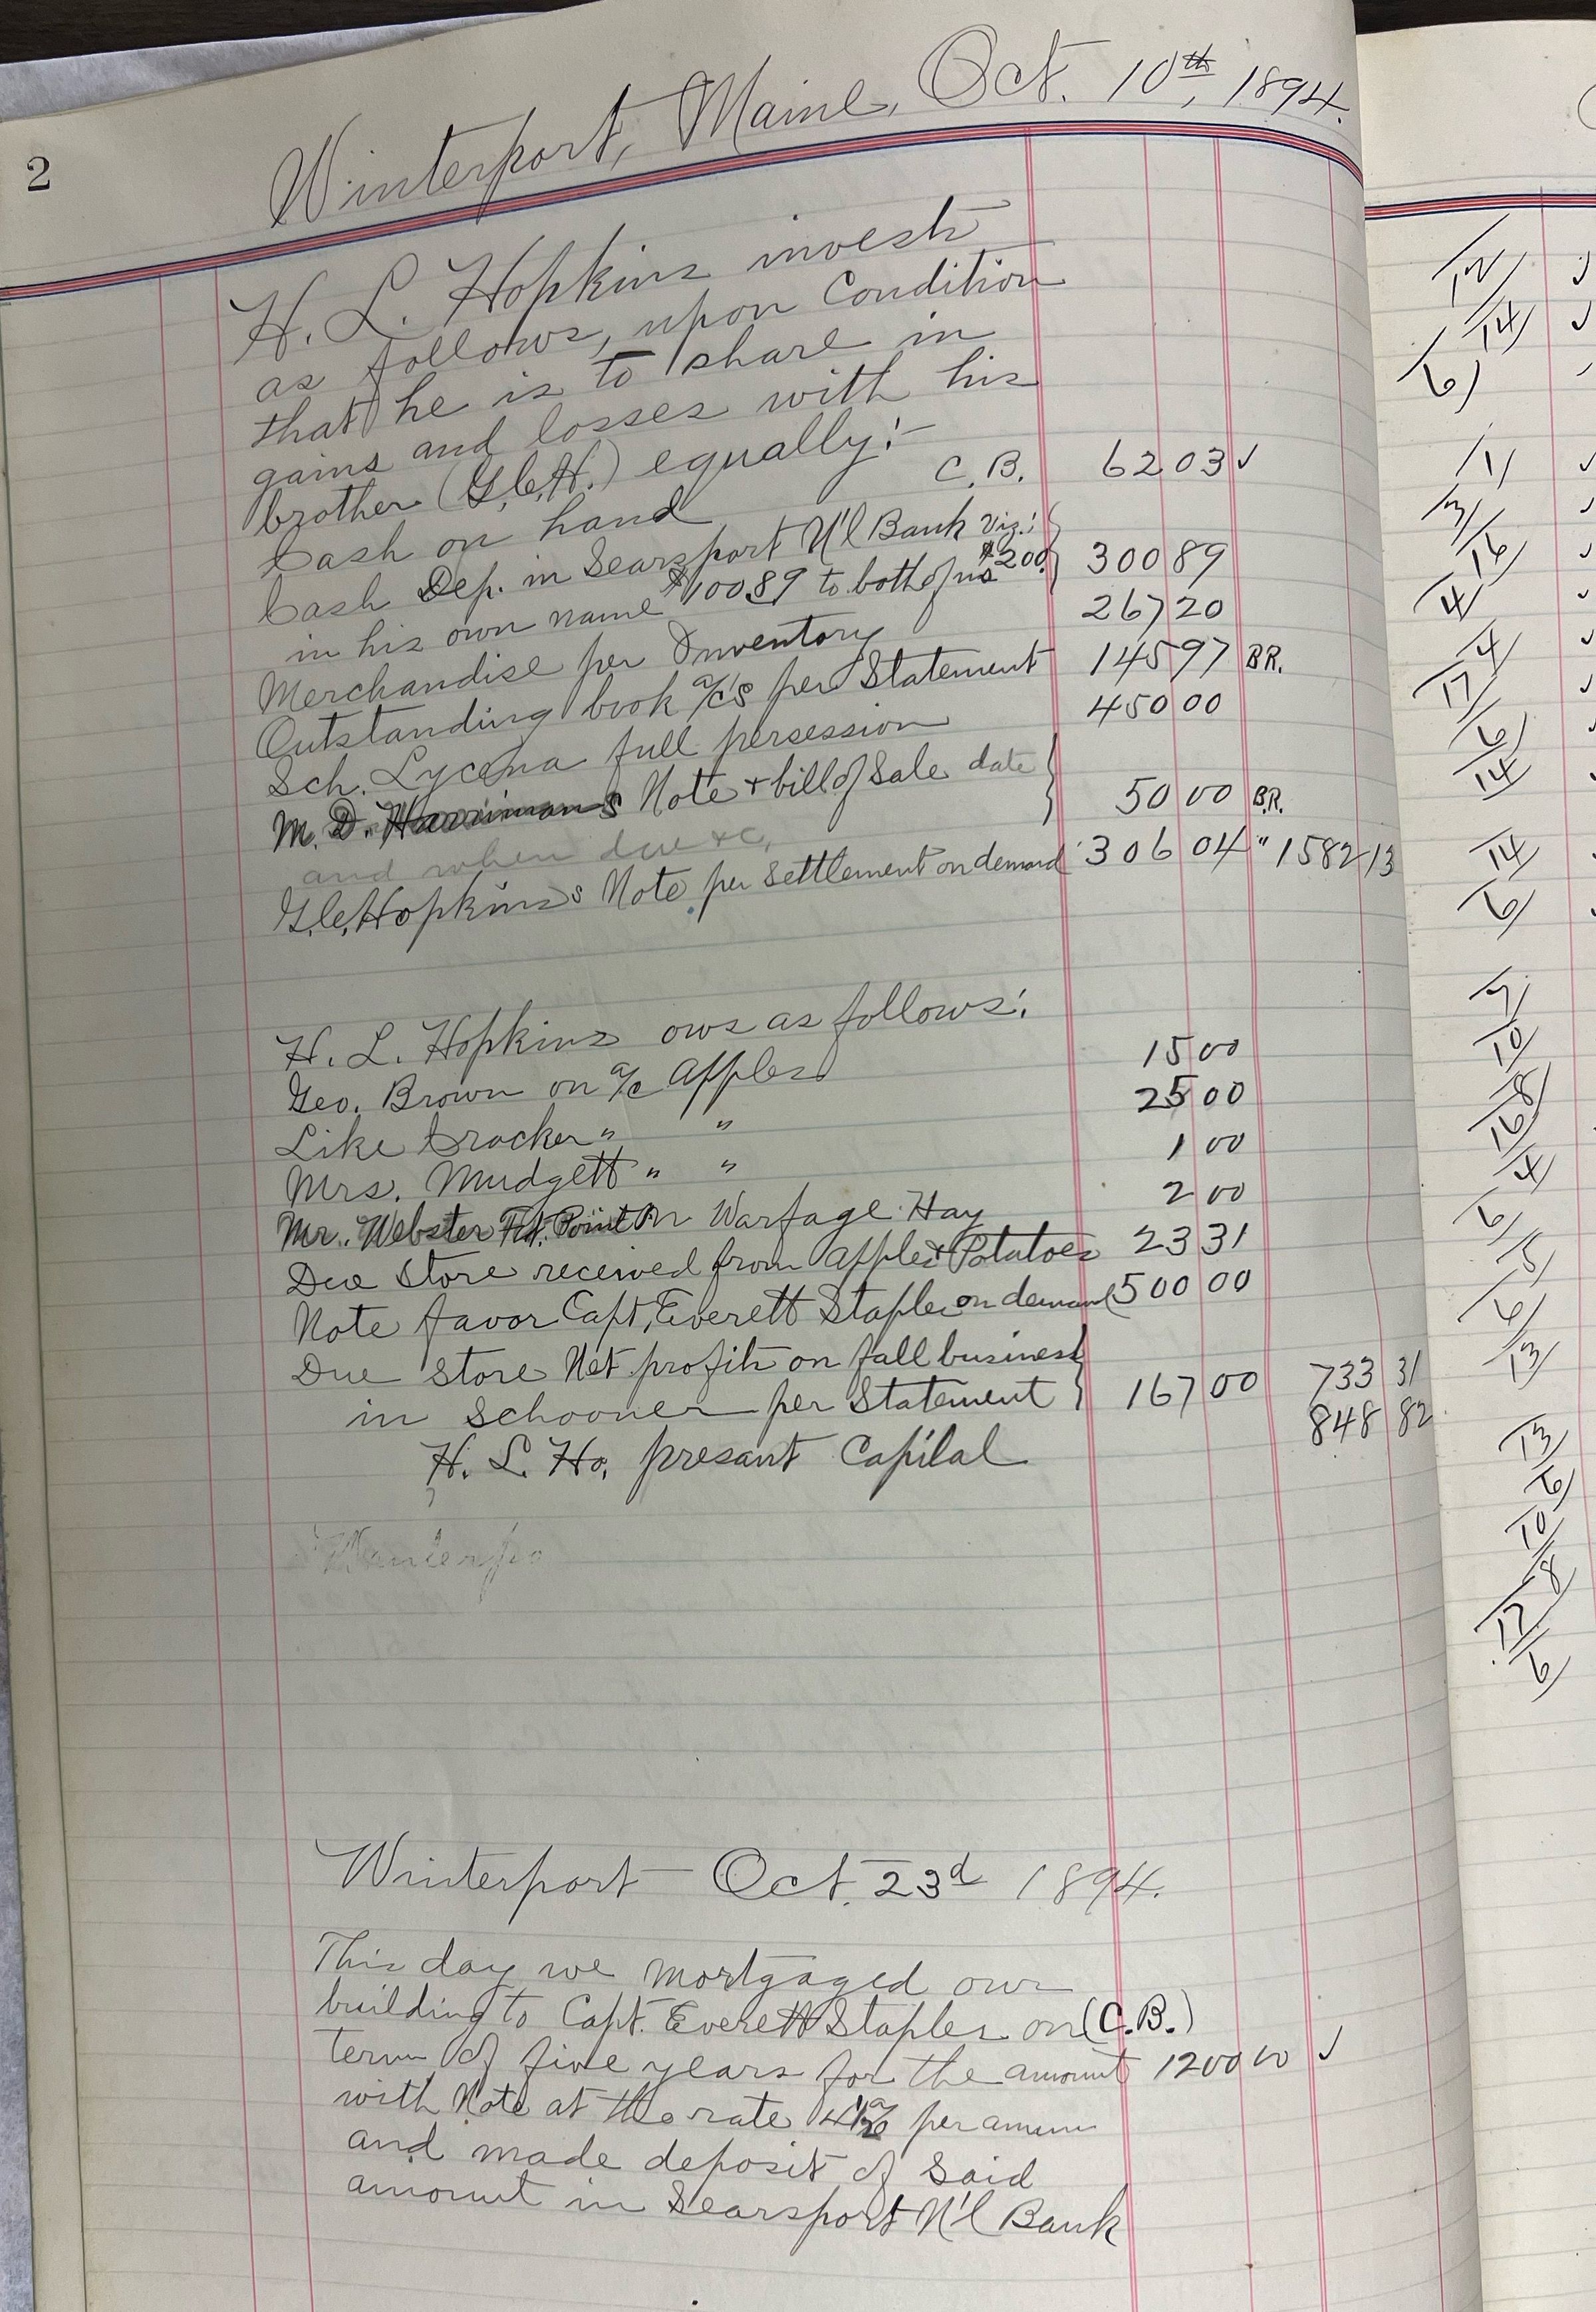 2
Winterport, Maine, Oct. 10th, 1894.
H. L. Hopkins invests
as follows, upon Condition
that he is to share in
gains and losses with his
brother (G.C.H.) equally:-
Cash on hand C.B. 62 03 ✓
Cash Dep. in Searsport N'l Bank Viz.:
in his own name $100 89 to both of us $200. 300 89
Merchandise per Inventory 267 20
Outstanding book a/c's per Statement 145 97 BR.
Sch. Lycena full persession 450 00
M. D. Harriman's Note + bill of Sale date
and when due &c, 50 00 B.R.
G.C. Hopkins's Note per Settlement on demand 306 04 " 1582 13
H. L. Hopkins ows as follows:
Geo. Brown on a/c Apples 15 00
Like Crocker " " 25 00
Mrs. Mudgett " " 1 00
Mr. Webster Ft. Point on Warfage Hay 2 00
Due Store received from Apples & Potatoes 23 31
Note favor Capt. Everett Staples on demand 500 00
Due Store Net profits on fall business
in Schooner per Statement 167 00 733 31
H. L. Ho, presant Capital 848 82
Wanterpo
Winterport Oct. 23d 1894.
This day we mortgaged our
building to Capt. Everett Staples on (C.B.)
term of five years for the amount 1200 00 ✓
with Note at the rate per annum
and made deposit of Said
amount in Searsport N'l Bank
12/
14/
6/
1/
3/
16/
4/
4/
17/
6/
14/
14/
6/
7/
10/
18/
16/
4/
6/
5/
6/
13/
13/
6/
10/
8/
17/
6/